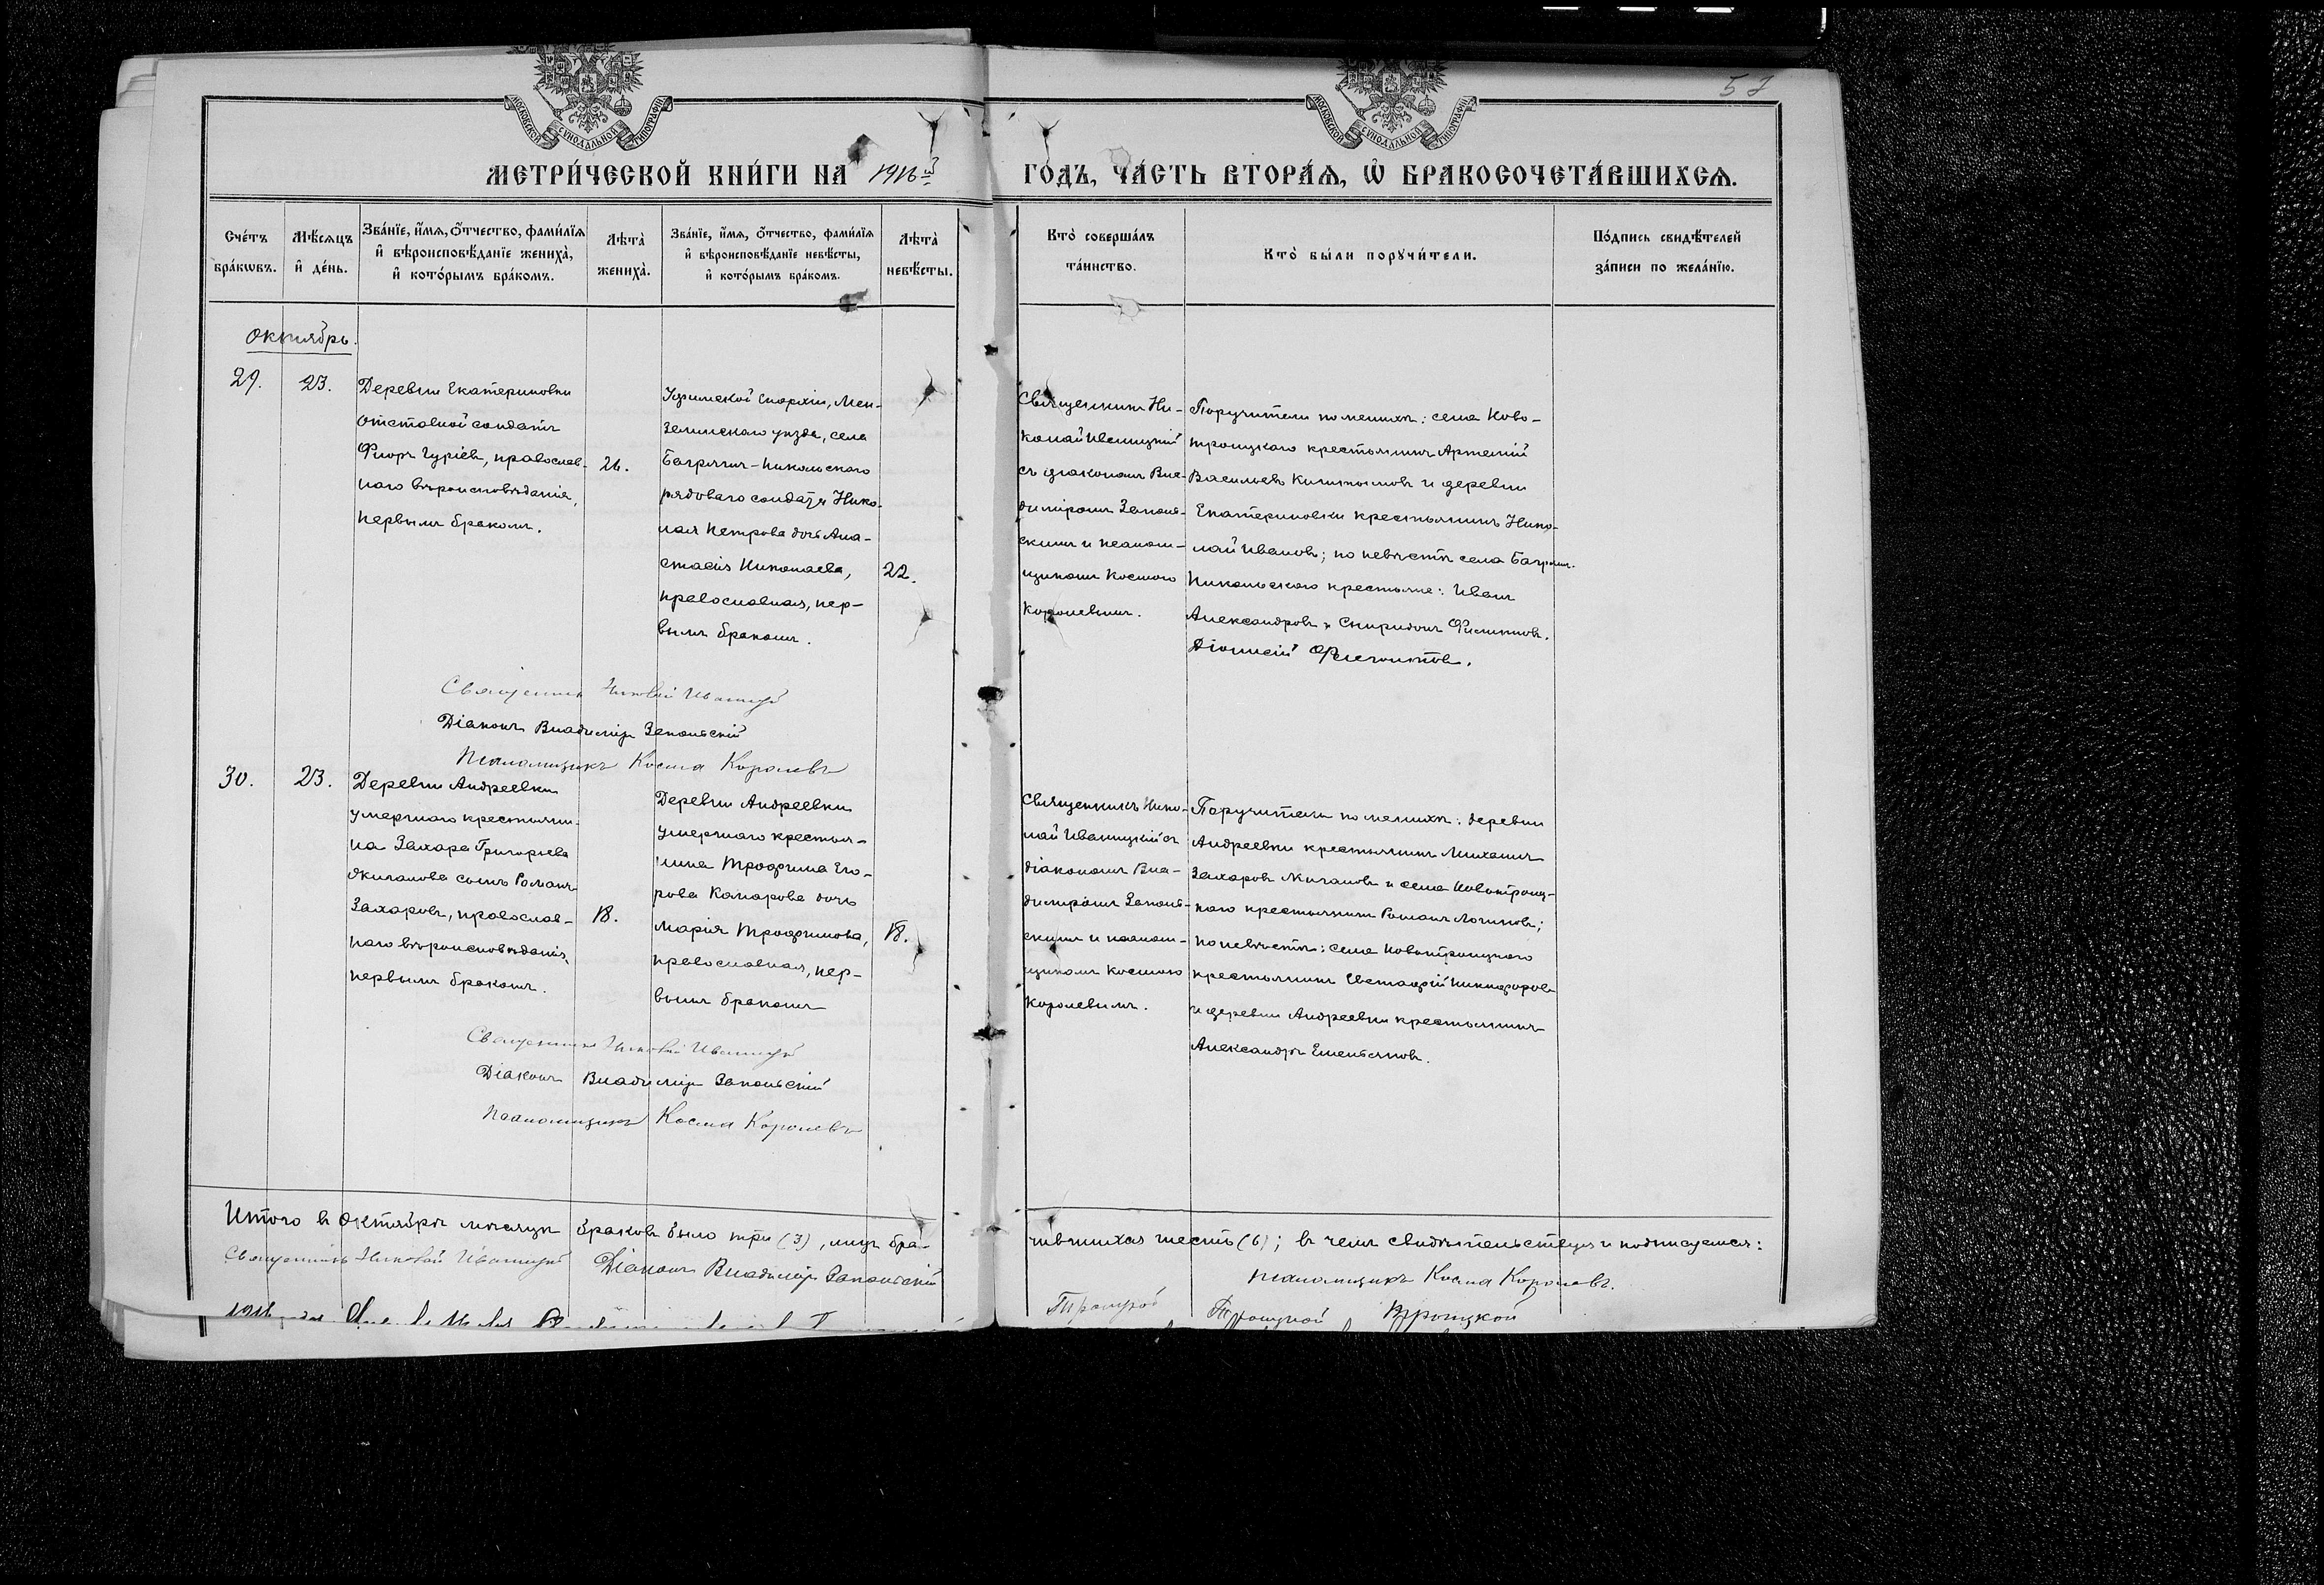 57
МОСКОВСКОЙ СѴНОДАЛЬНОЙ ТИПОГРАФІИ
МОСКОВСКОЙ СѴНОДАЛЬНОЙ ТИПОГРАФІИ
МЕТРИ́ЧЕСКОЙ КНИ́ГИ НА 1916й ГО́ДЪ, ЧА́СТЬ ВТОРА́Ѧ, Ѡ БРАКОСОЧЕТА́ВШИХСѦ.
Сче́тъ бра́кѡвъ.
Мѣ́сяцъ и҆ де́нь.
Зва́нїе, и҆́мѧ, ѻ҆́тчество, фами́лїѧ и҆ вѣроисповѣ́данїе жениха̀, и҆ кото́рымъ бра́комъ.
Лѣта̀ жениха̀.
Зва́нїе, и҆́мѧ, ѻ҆́тчество, фами́лїѧ и҆ вѣроисповѣ́данїе невѣ́сты, и҆ кото́рымъ бра́комъ.
Лѣта̀ невѣ́сты.
Кто̀ соверша́лъ та́инство.
Кто̀ бы́ли порꙋчи́тели.
По́дпись свидѣ́телей за́писи по жела́нїю.
Октябрь.
29.
23.
Деревни Екатериновки
отставной солдатъ
Флоръ Гуріевъ, православ-
наго вѣроисповѣданія,
первымъ бракомъ.
26.
Уфимской Епархіи, Мен-
зелинскаго уѣзда, села
Багряжъ-Никольскаго
рядоваго солдата Нико-
лая Петрова дочь Ана-
стасія Николаева,
православная, пер-
вымъ бракомъ.
22.
Священникъ Ни-
колай Иваницкій
съ діакономъ Вла-
диміромъ Заполь-
скимъ и псалом-
щикомъ Космою
Королевымъ.
Поручители по женихѣ: села Ново-
троицкаго крестьянинъ Артемій
Васильевъ и деревни
Екатериновки крестьянинъ Нико-
лай Ивановъ; по невѣстѣ села Багряжъ-
Никольскаго крестьяне: Иванъ
Александровъ и Спиридонъ Филипповъ.
Діонисій
Священникъ Николай Иваницкій
Діаконъ Владиміръ Запольскій
Псаломщикъ Косма Королевъ
30.
23.
Деревни Андреевки
умершаго крестьяни-
на Захара Григорьева
сынъ Романъ
Захаровъ, православ-
наго вѣроисповѣданія,
первымъ бракомъ.
18.
Деревни Андреевки
умершаго крестья-
нина Трофима Его-
рова Комарова дочь
Марія Трофимова,
православная, пер-
вымъ бракомъ
18.
Священникъ Нико-
лай Иваницкій съ
діакономъ Вла-
диміромъ Заполь-
скимъ и псалом-
щикомъ Космою
Королевымъ.
Поручители по женихѣ: деревни
Андреевки крестьянинъ Михаилъ
Захаровъ и села Новотроиц-
каго крестьянинъ Романъ Логиновъ;
по невѣстѣ: села Новотроицкаго
крестьянинъ Евстафій Никифоровъ
и деревни Андреевки крестьянинъ
Александръ Емельяновъ.
Священникъ Николай Иваницкій
Діаконъ Владиміръ Запольскій
Псаломщикъ Косма Королевъ
Итого въ Октябрѣ мѣсяцѣ браковъ было три (3), лицъ бра-
чившихся шесть (6); въ чемъ свидѣтельствуемъ и подписуемся:
Священникъ Николай Иваницкій Діаконъ Владиміръ Запольскій
Псаломщикъ Косма Королевъ.
1916 года
Троицкой Троицкой Троицкой